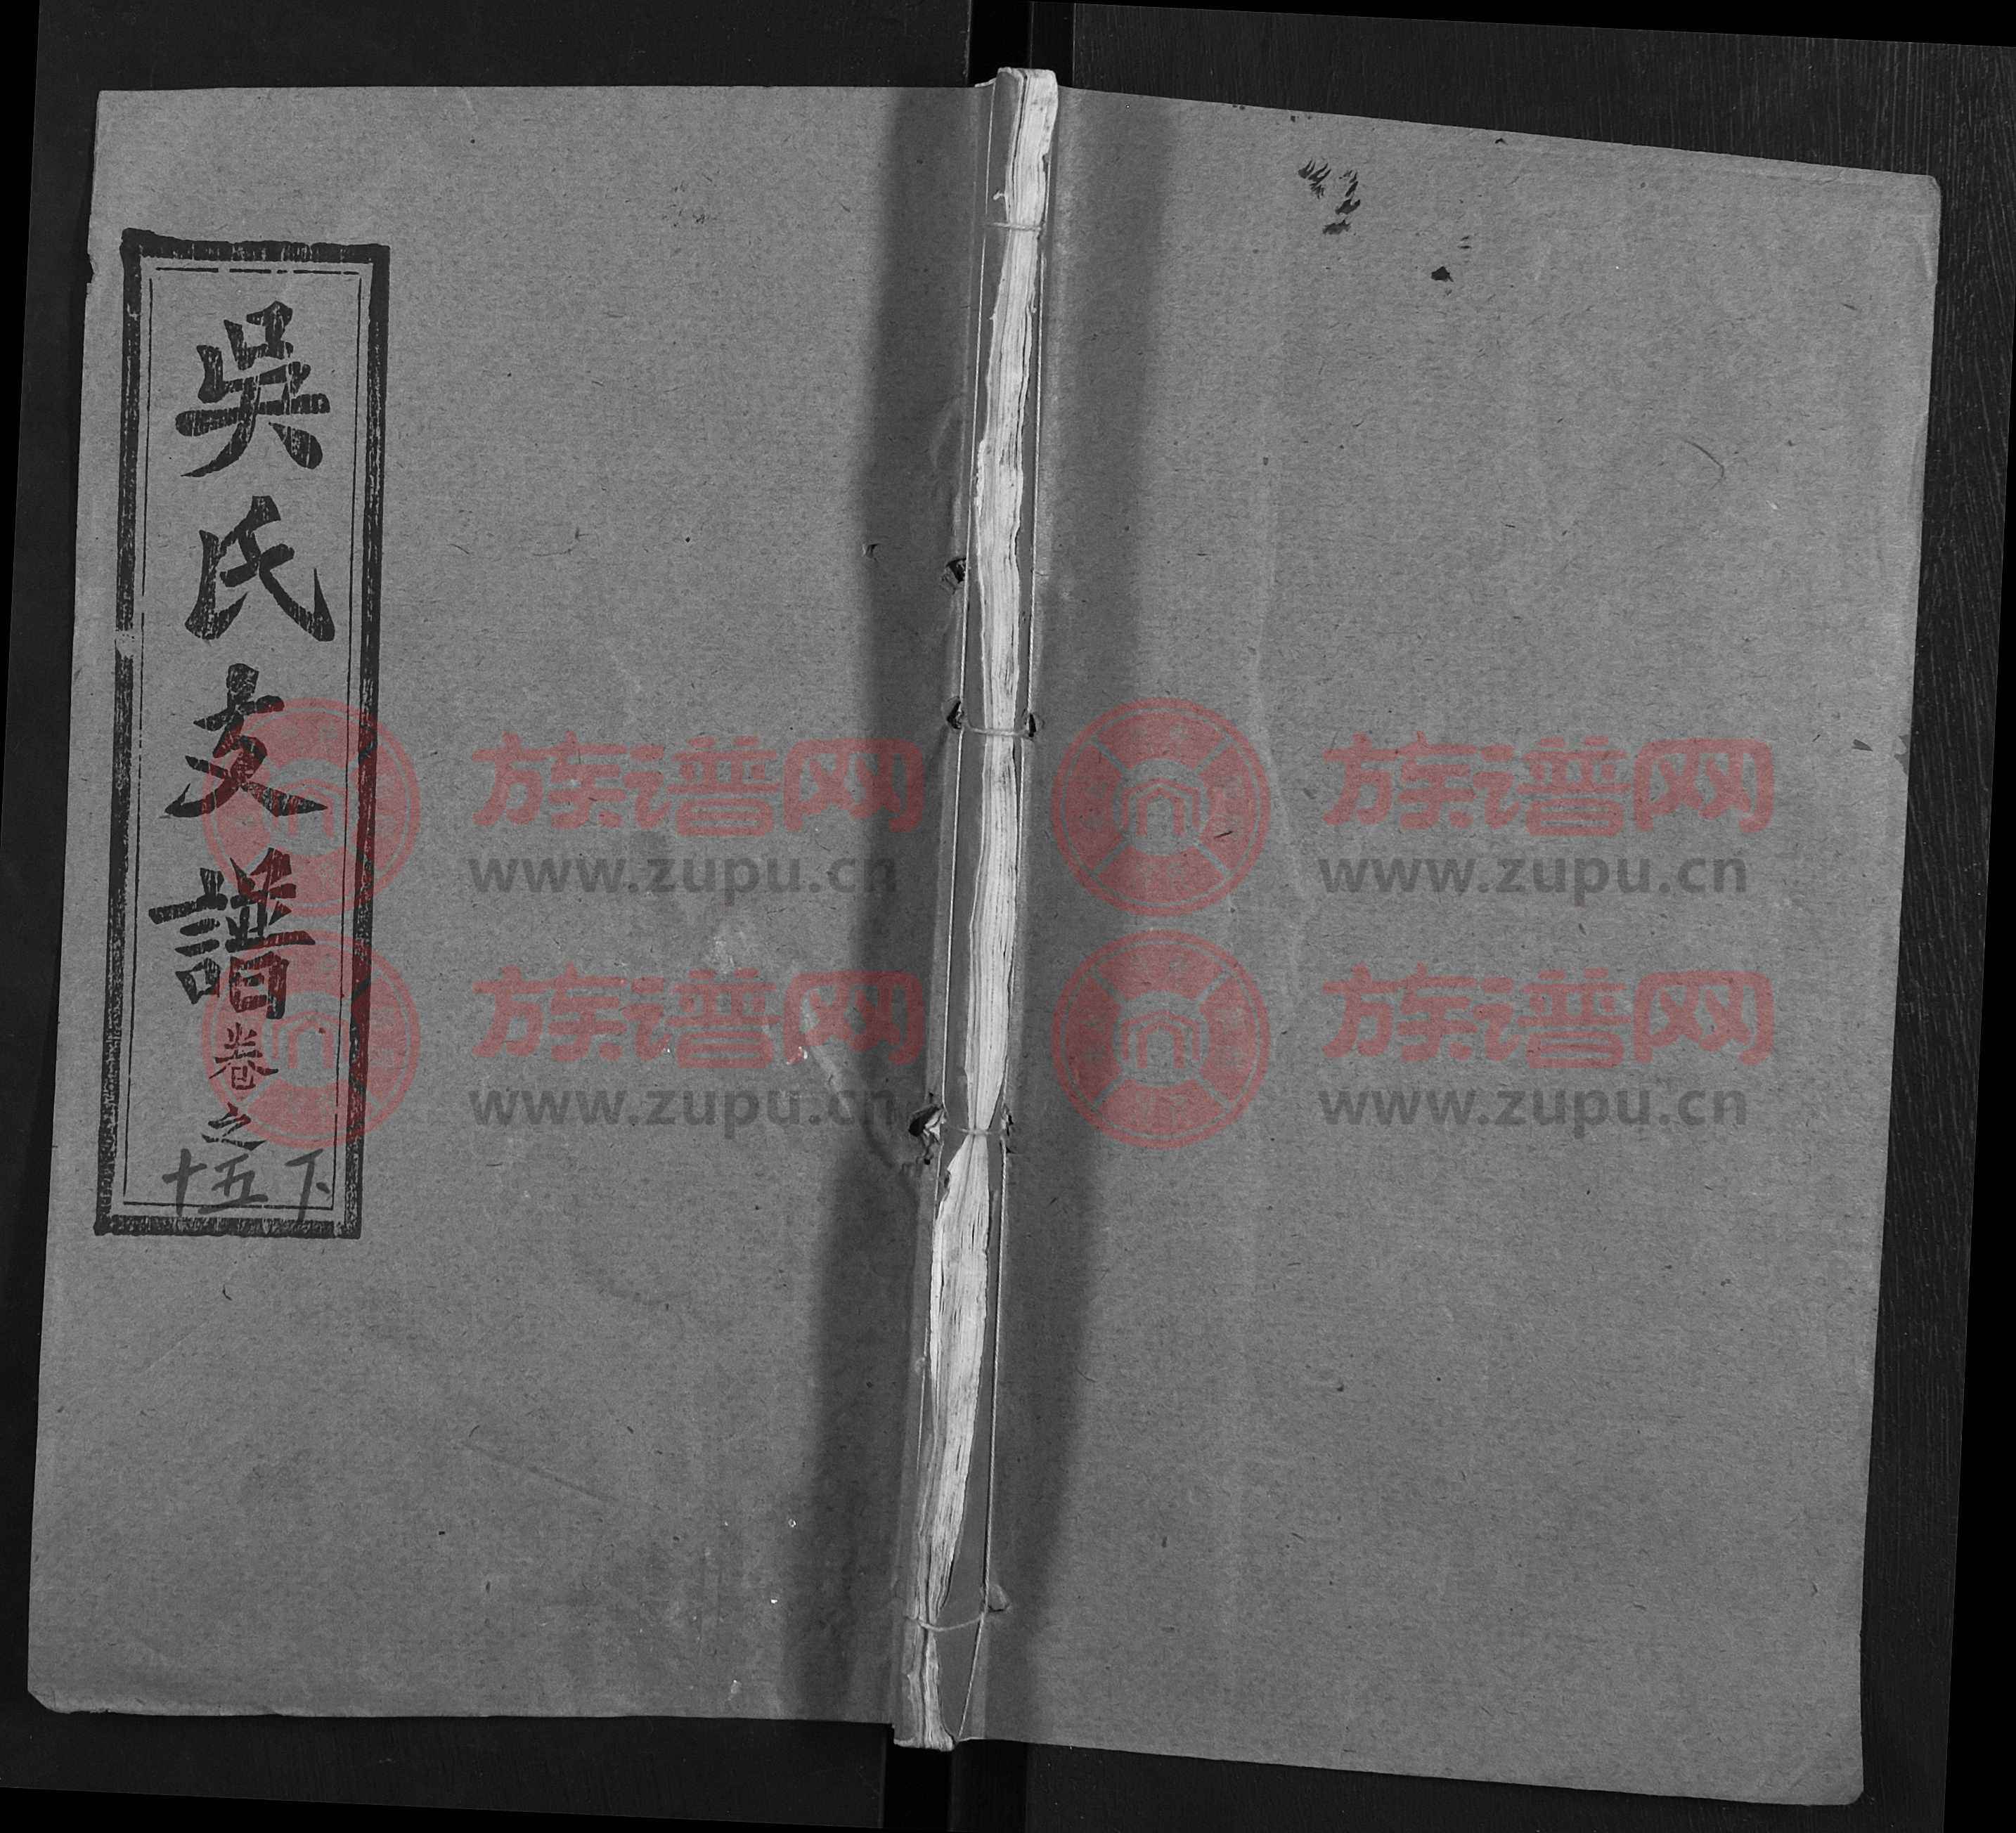 吳氏支譜卷之
十五下
族谱网
www.zupu.cn
族谱网
www.zupu.cn
族谱网
www.zupu.cn
族谱网
www.zupu.cn